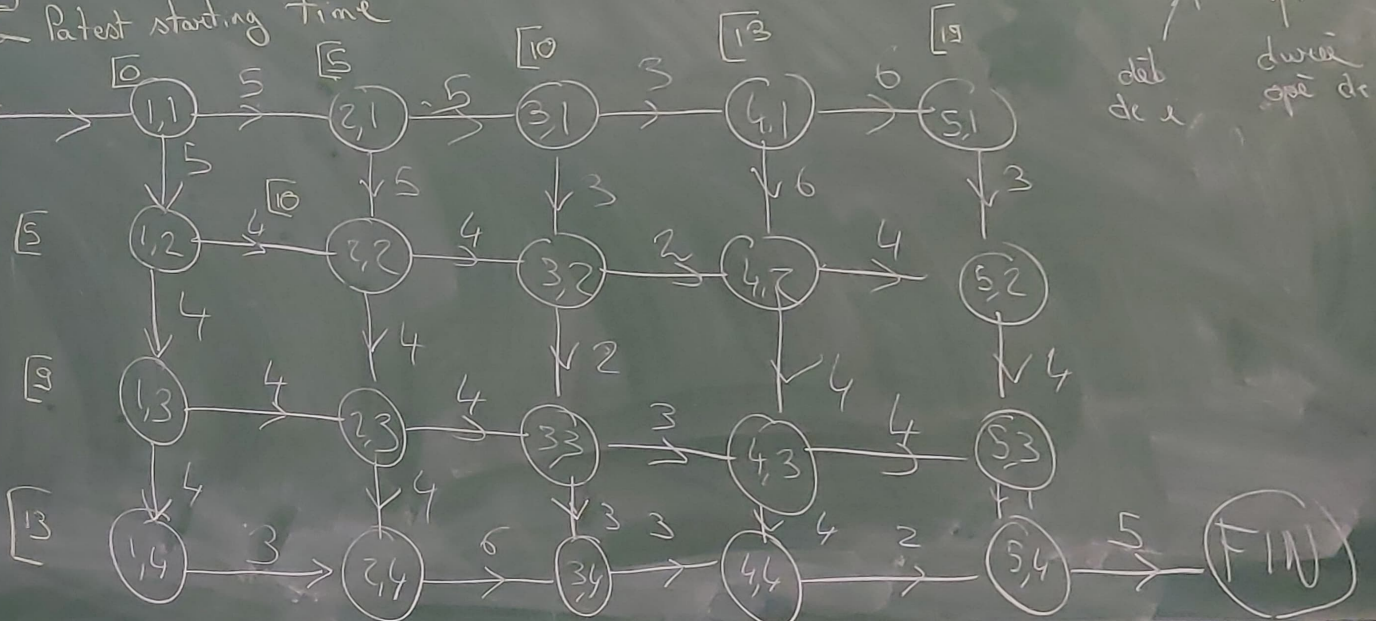 Patest starting Time
[0 [5 [10 [13 [19
déb durée
de opé de
1,1 5 2,1 5 3,1 3 4,1 6 5,1
5 5 3 6 3
[5 1,2 4 [10 2,2 4 3,2 2 4,2 4 5,2
4 4 2 4 4
[9 1,3 4 2,3 4 3,3 3 4,3 4 5,3
4 4 3 4 1
[13 1,4 3 2,4 6 3,4 3 4,4 2 5,4 5 FIN